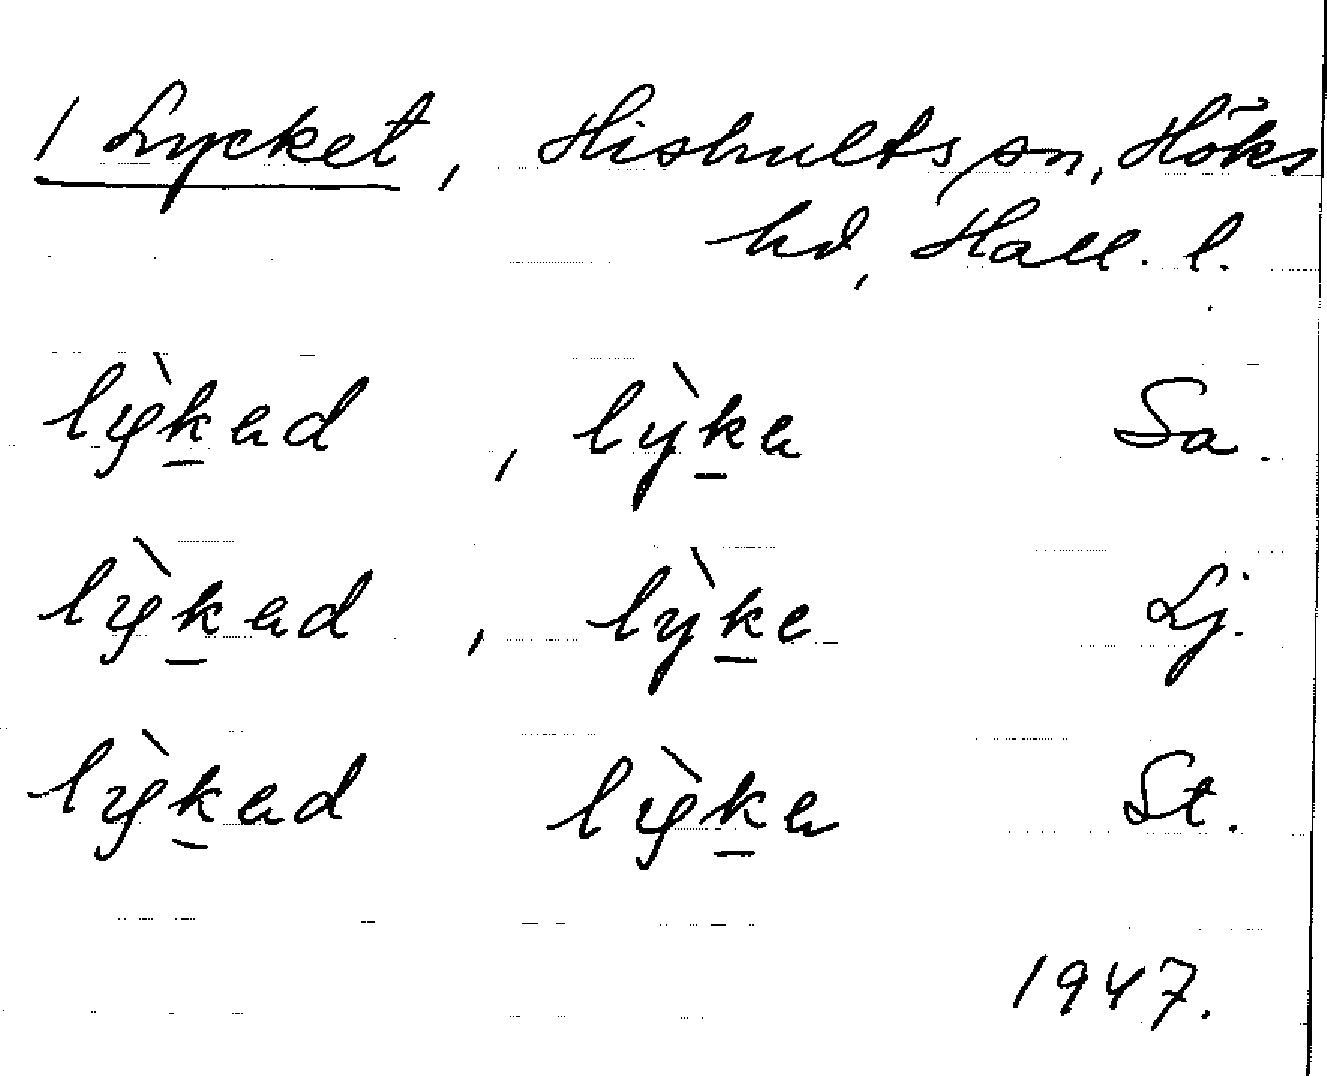 1 Lycket, Hishults sn, Höks
hd, Hall. l.
lỳk̲ad , lỳk̲a Sa.
lỳk̲ad , lỳk̲e Lj.
lỳk̲ad lỳk̲a St.
1947.